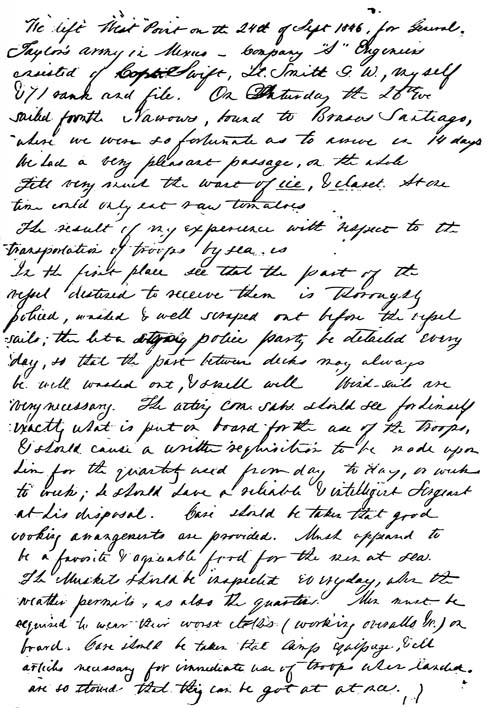 We left West Point on the 24th of Sept 1846, for General
Taylor's army in Mexico – Company "A" Engineers
consisted of Capt Swift, Lt. Smith G. W., myself
& 71 rank and file. On Saturday the 26th we
sailed from the Narrows, bound to Brasos Santiago,
where we were so fortunate as to arrive in 14 days
We had a very pleasant passage, on the whole
Felt very much the want of ice, & At one
time could only eat raw tomatoes
The result of my experience with respect to the
transportation of troops by sea is
In the first place see that the part of the
vessel destined to receive them is thoroughly
policed, washed & well scraped out before the vessel
sails; then let a strong police party be detailed every
day, so that the part between decks may always
be well washed out, & smell well Wind sails are
very necessary. The acting com. subs. should see for himself
exactly what is put on board for the use of the troops,
& should cause a written requisition to be made upon
him for the quantity used from day to day, or week
to week; he should have a reliable & intelligent Sergeant
at his disposal. Care should be taken that good
cooking arrangements are provided. Mush appeared to
be a favorite & agreeable food for the men at sea.
The Muskets should be inspected every day, when the
weather permits, as also the quarters. Men must be
required to wear their worst clothes (working overalls &c.) on
board. Care should be taken that Camp Equipage, & all
articles necessary for immediate use of troops when landed
are so stowed that they can be got at at once.